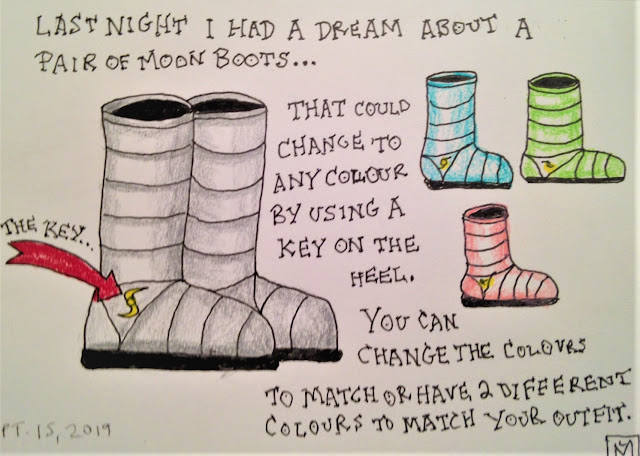 LAST NIGHT I HAD A DREAM ABOUT A
PAIR OF MOON BOOTS...
THAT COULD
CHANGE TO
ANY COLOUR
BY USING A
KEY ON THE
HEEL.
THE KEY...
YOU CAN
CHANGE THE COLOURS
TO MATCH OR HAVE 2 DIFFERENT
COLOURS TO MATCH YOUR OUTFIT.
PT. 15, 2019